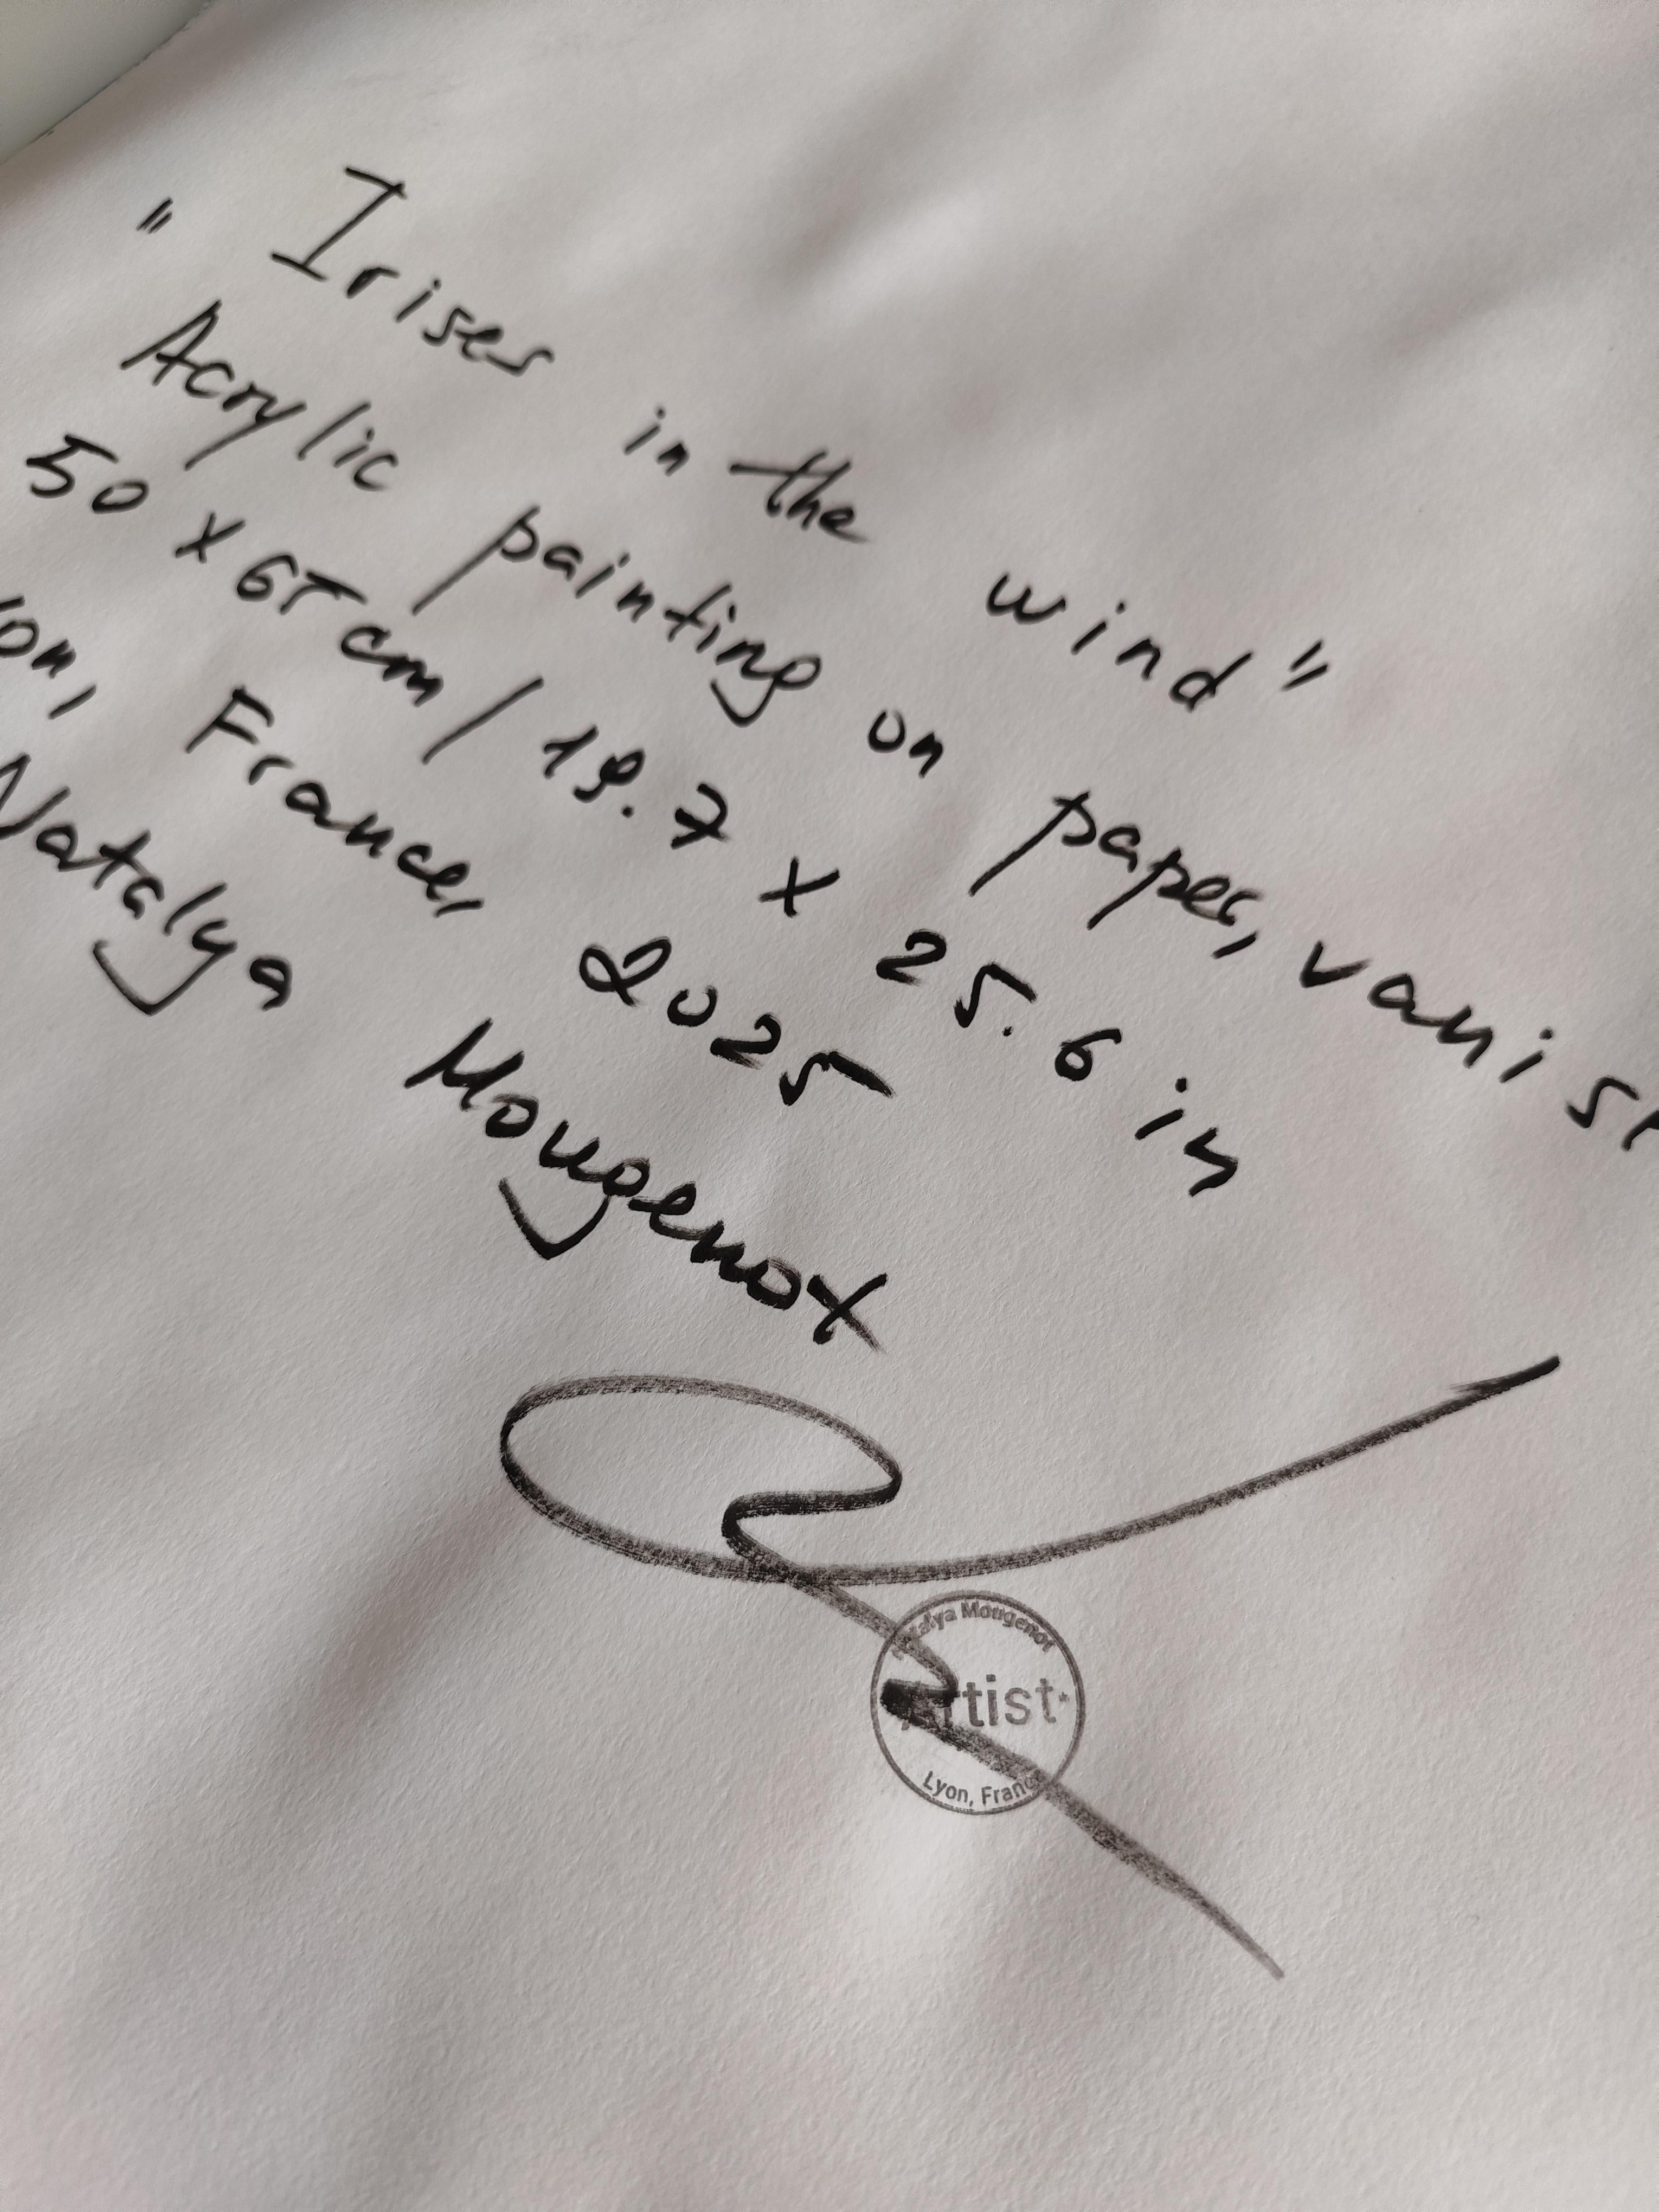 "Irises in the wind"
Acrylic painting on paper, vanis
50 x 65 cm / 19.7 x 25.6 in
yon, France, 2025
Natalya Mougenot
Natalya Mougenot
Artist
Lyon, France